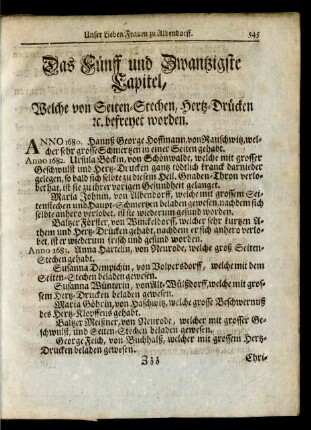 Unser Lieben Frauen zu Albendorff. 545
Das Fünff und Zwantzigste
Capitel,
Welche von Seiten-Stechen, Hertz-Drücken
ꝛc. befreyet worden.
ANNO 1680. Hannß George Hoffmann, von Rauschwitz, wel-
cher sehr grosse Schmertzen in einer Seiten gehabt.
Anno 1682. Ursula Böckin, von Schönwalde, welche mit grosser
Geschwulst und Hertz-Drucken gantz tödtlich kranck darnieder
gelegen, so bald sich selbte zu diesem Heil. Gnaden-Thron verlo-
bet hat, ist sie zu ihrer vorigen Gesundheit gelanget.
Maria Johnin, von Albendorff, welche mit grossem Sei-
tenstechen und Haupt-Schmertzen beladen gewesen, nachdem sich
selbte anhero verlobet, ist sie wiederum gesund worden.
Baltzer Förster, von Winckeldorff, welcher sehr kurtzen A-
them und Hertz-Drücken gehabt, nachdem er sich anhero verlo-
bet, ist er wiederum frisch und gesund worden.
Anno 1683. Anna Hartelin, von Neurode, welche groß Seiten-
Stechen gehabt.
Susanna Dempichin, von Volpersdorff, welche mit dem
Seiten-Stechen beladen gewesen.
Susanna Wünterin, von Alt-Wülßdorff, welche mit gros-
sem Hertz-Drucken beladen gewesen.
Maria Göbrin, von Haschwitz, welche grosse Beschwernuß
des Hertz-Klopffens gehabt.
Baltzer Meißner, von Neurode, welcher mit grosser Ge-
schwulst, und Seiten-Stechen beladen gewesen.
George Feich, von Buchhalß, welcher mit grossem Hertz-
Drucken beladen gewesen.
Zzz Chri-